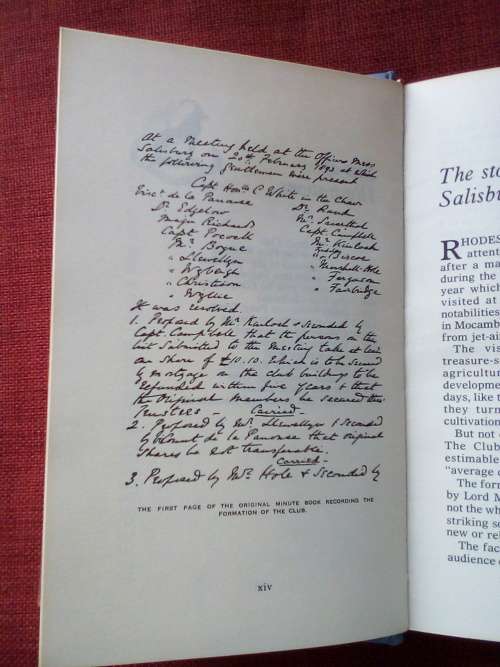 At a Meeting held at the Officers Mess
Salisbury on 20th February 1893 at which
the following gentlemen were present
Capt Honble C White in the Chair
Vict. de la Panouse Dr. Rand
Dr Edgelow Mr.
Major Richards Capt Campbell
Capt Mr Kinloch
Mr. Bogue " Biscoe
" Llewellyn " Marshall Hole
" " Ferguson
" Christison " Fairbridge
" Wyllie
It was resolved
1. Proposed by Mr. Kinloch & Seconded by
Capt. Campbell that the persons on the
list submitted to the meeting take at least
one share of £10.10. which is to be secured
by mortgage on the club buildings to be
refunded within five years & that
the original members be secured thro
trustees – Carried –
2. Proposed by Mr. Llewellyn & Seconded
by Vicomte de la Panouse that original
shares be not transferable.
Carried –
3. Proposed by Mr. Hole & Seconded by
THE FIRST PAGE OF THE ORIGINAL MINUTE BOOK RECORDING THE
FORMATION OF THE CLUB.
xiv
The sto
Salisbu
RHODES
attenti
after a ma
during the
year which
visited at
notabilities
in Mocamb
from jet-air
The vis
treasure-s
agricultur
developme
days, like t
they turn
cultivation
But not
The Club
estimable
"average c
The form
by Lord M
not the wh
striking se
new or rel
The fac
audience o